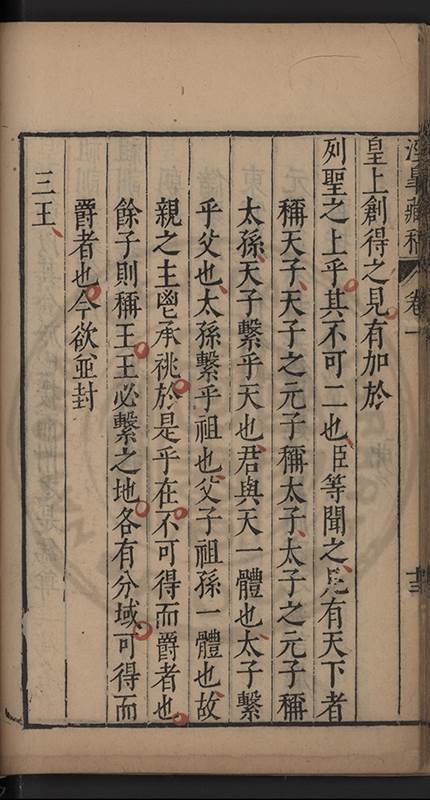 涇皋藏稿 卷一
十三
皇上創得之見有加於
列聖之上乎其不可二也臣等聞之凡有天下者
稱天子天子之元子稱太子太子之元子稱
太孫天子繫乎天也君與天一體也太子繫
乎父也太孫繫乎祖也父子祖孫一體也故
親之主鬯承祧於是乎在不可得而爵者也
餘子則稱王王必繫之地各有分域可得而
爵者也今欲並封
三王